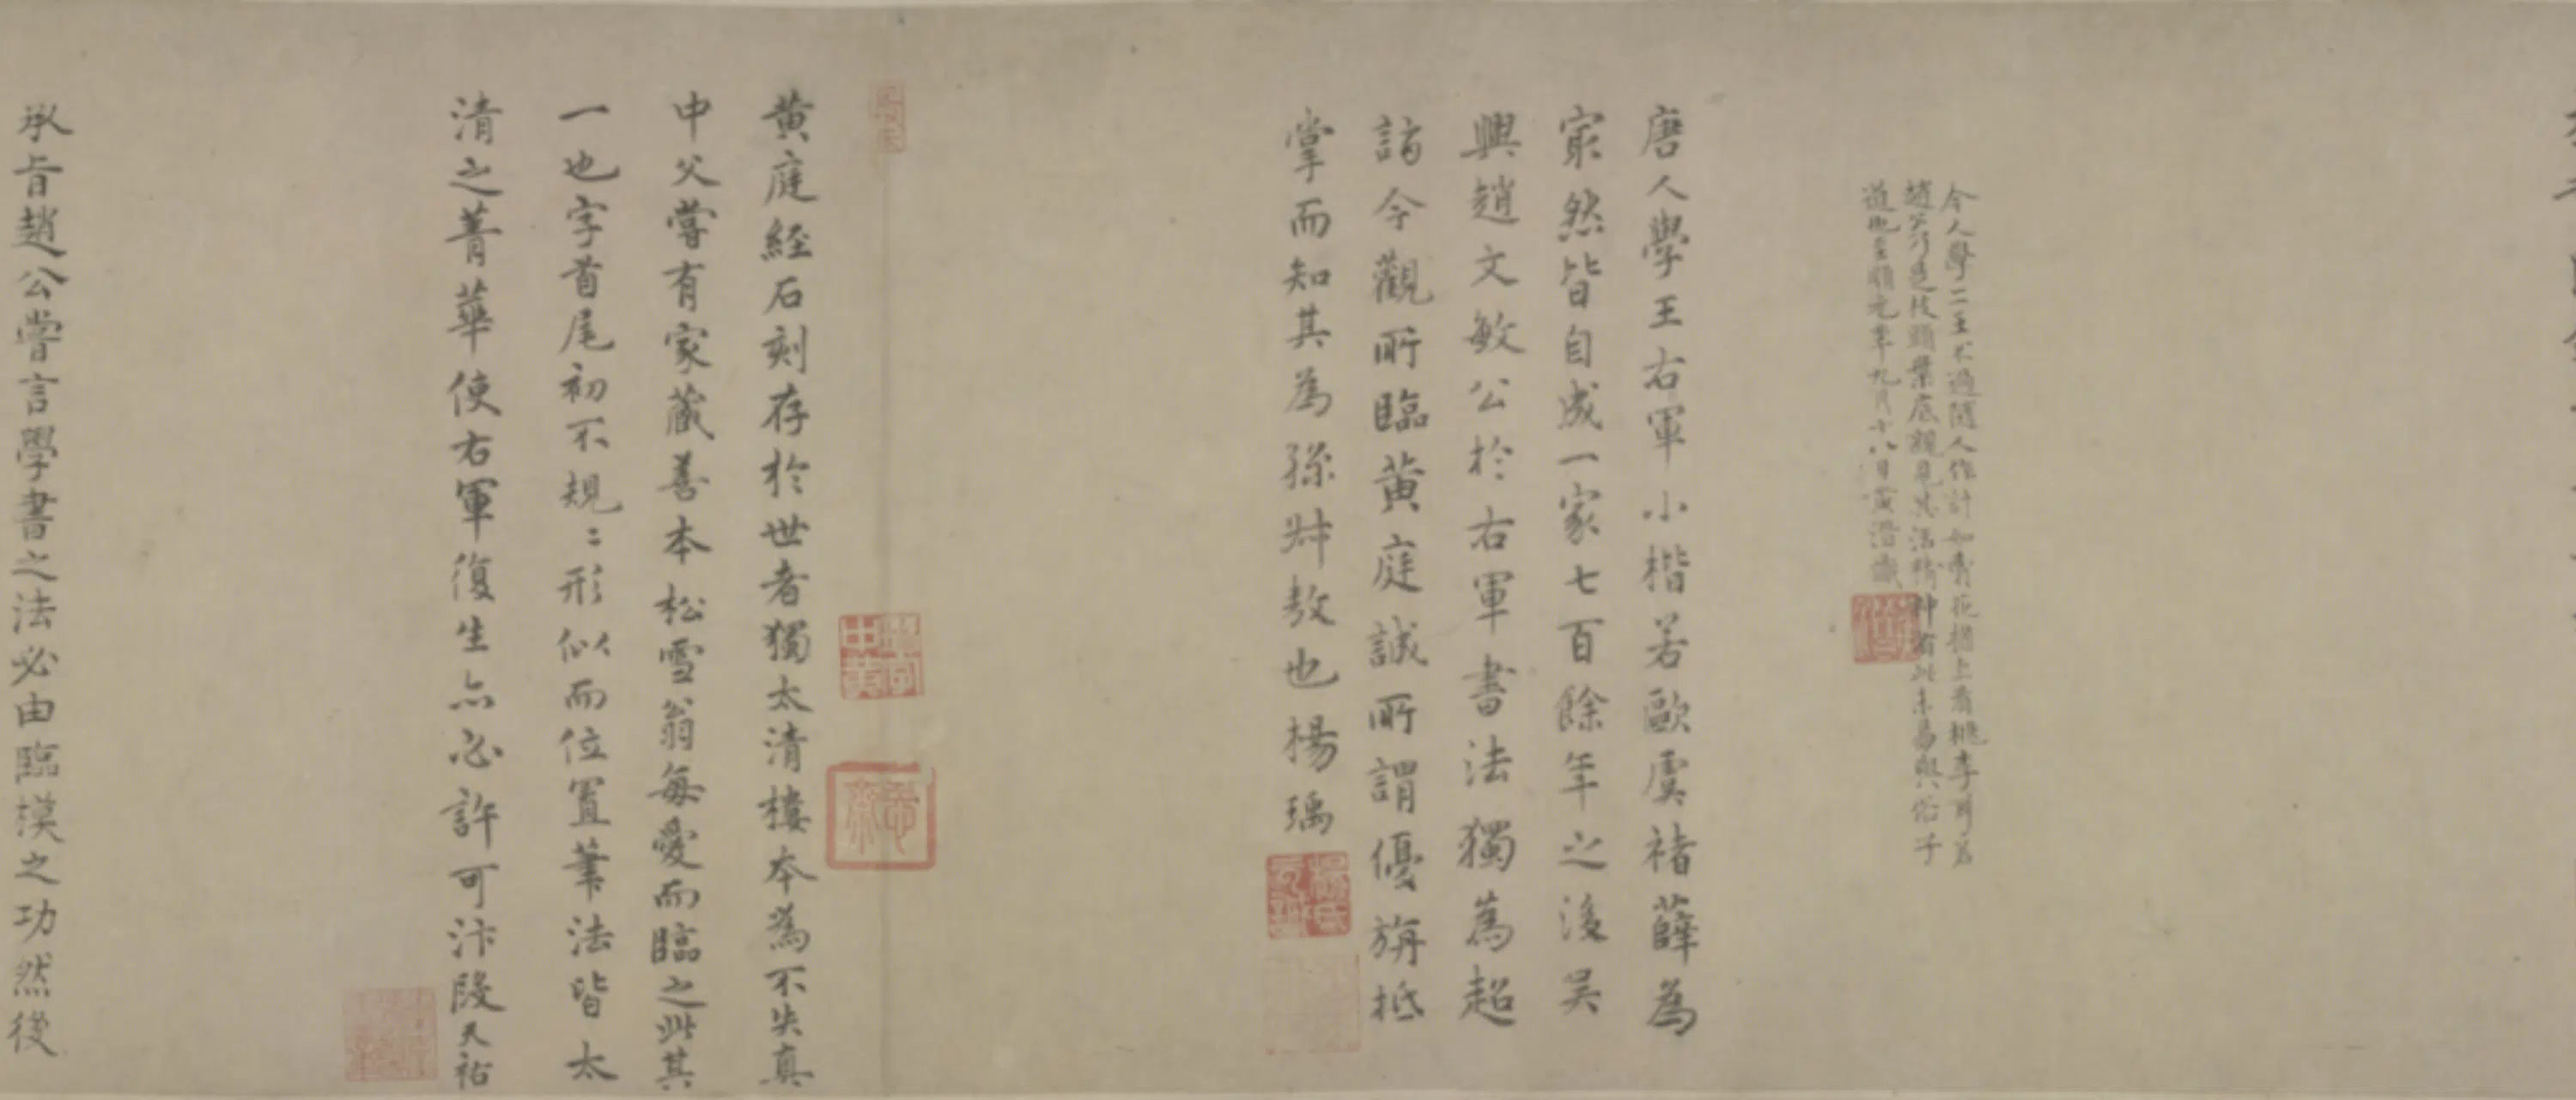 今人學二王不過隨人作計如賣花擔上看桃李耳若
趙公乃是枝頭葉底親見其活精神者此未易與俗子
道也至順元年九月十八日黃溍識
唐人學王右軍小楷若歐虞褚薛為
冣然皆自成一家七百餘年之後吳
興趙文敏公於右軍書法獨為超
詣今觀所臨黃庭誠所謂優旃抵
掌而知其為孫叔敖也楊瑀
黃庭經石刻存於世者獨太清樓本為不失真
中父嘗有家藏善本松雪翁每愛而臨之此其
一也字首尾初不規〻形似而位置筆法皆太
清之菁華使右軍復生亦必許可汴段天祐
承旨趙公嘗言學書之法必由臨模之功然後